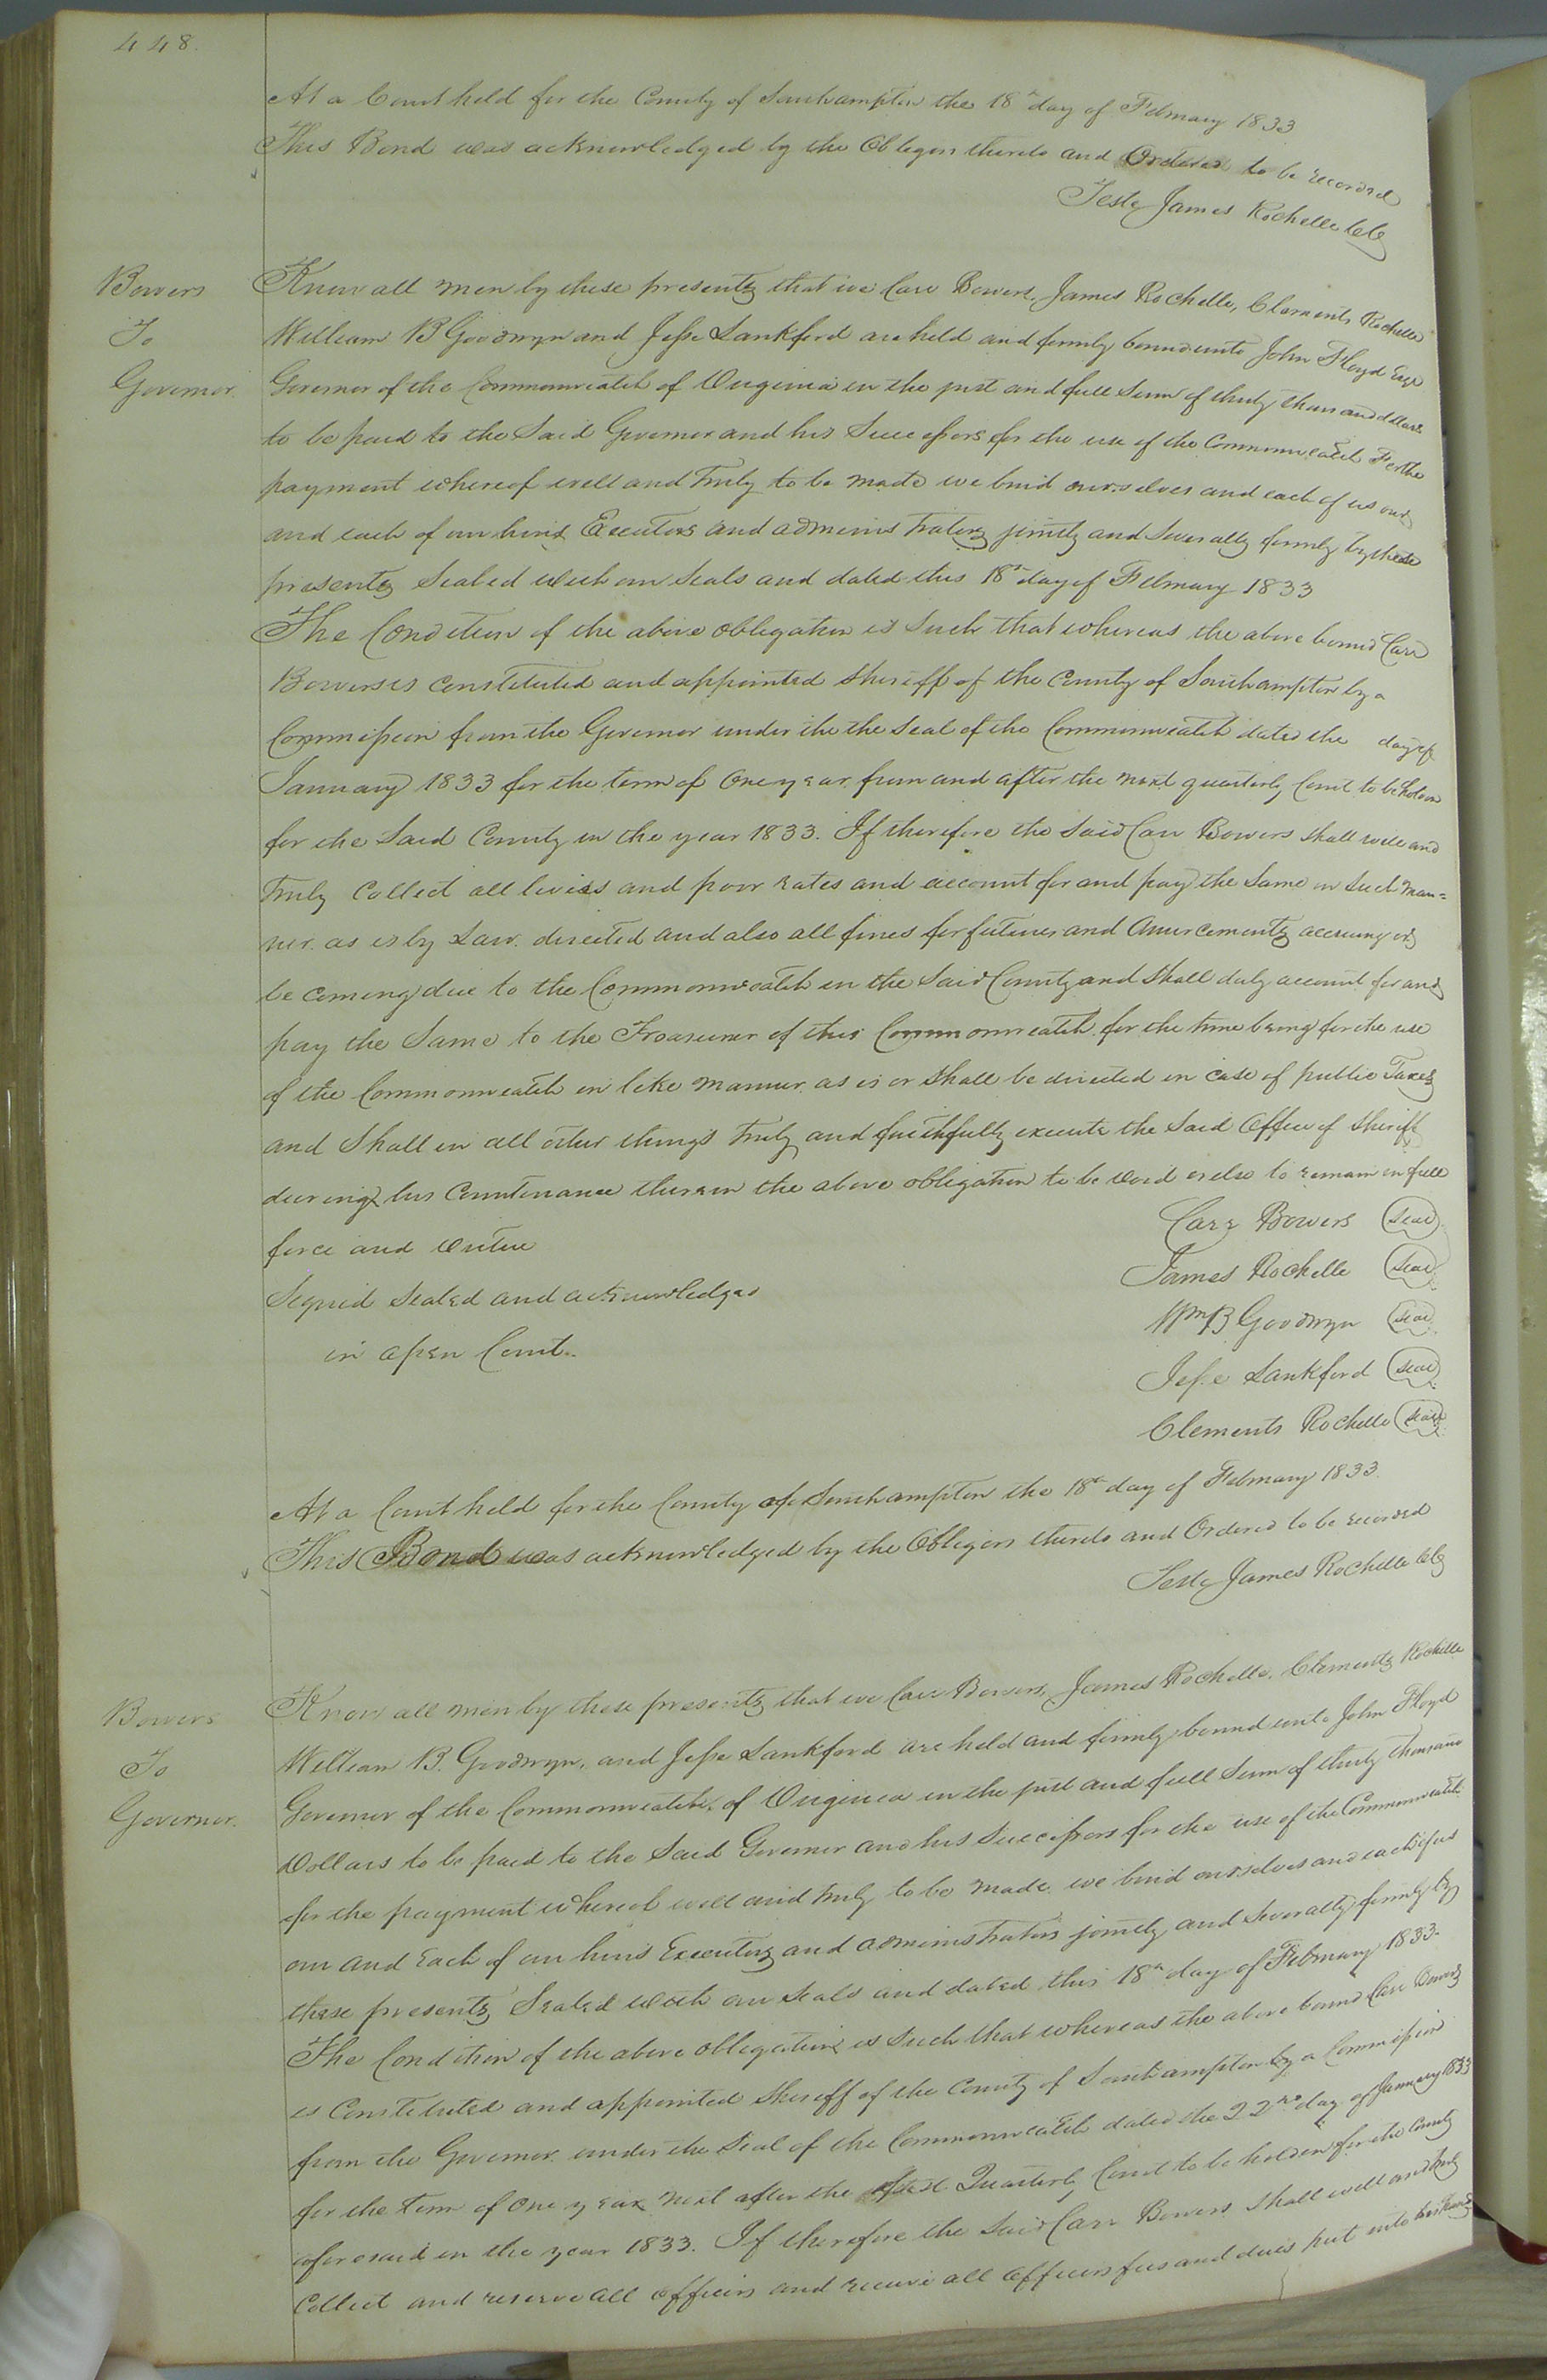 448.
At a Court held for the County of Southampton the 18th day of February 1833
This Bond was acknowledged by the Obligors thereto and Ordered to be recorded
Teste James Rochelle CC
Bowers
To
Governor.
Know all men by these presents that we Carr Bowers, James Rochelle, Clements Rochelle
William B Goodwyn and Jesse Lankford are held and firmly bound unto John Floyd Esqr
Governor of the Commonwealth of Virginia in the just and full Sum of thirty thousand dollars
to be paid to the Said Governor and his Successors for the use of the Commonwealth For the
payment whereof well and truly to be made we bind ourselves and each of us our
and each of our heirs Executors and administrators jointly and Severally firmly by these
presents Sealed with our Seals and dated this 18th day of February 1833
The Condition of the above obligation is Such that whereas the above bound Carr
Bowers is Constituted and appointed Sheriff of the County of Southampton by a
Commission from the Governor under the the Seal of the Commonwealth dated the day of
January 1833 for the term of One year from and after the next quarterly Court to be holden
for the Said County in the year 1833. If therefore the Said Carr Bowers shall well and
truly Collect all levies and poor rates and account for and pay the Same in such man=
ner as is by Law directed and also all fines forfeitures and Amercements accruing or
becoming due to the Commonwealth in the Said County and shall duly account for and
pay the Same to the Treasurer of this Commonwealth for the time being for the use
of the Commonwealth in like manner as is or shall be directed in case of public Taxes
and Shall in all other things truly and faithfully execute the Said Office of Sheriff
during his Countenance therein the above obligation to be void or else to remain in full
force and virtue
Signed Sealed and acknowledged
in open Court.
Carr Bowers Seal
James Rochelle Seal
Wm B Goodwyn Seal
Jesse Lankford Seal
Clements Rochelle Seal
At a Court held for the County of Southampton the 18th day of February 1833.
This Bond was acknowledged by the Obligors thereto and Ordered to be recorded
Teste James Rochelle CC
Bowers
To
Governor.
Know all men by these presents that we Carr Bowers, James Rochelle, Clements Rochelle
William B. Goodwyn, and Jesse Lankford are held and firmly bound unto John Floyd
Governor of the Commonwealth of Virginia in the just and full Sum of thirty thousand
Dollars to be paid to the Said Governor and his Successors for the use of the Commonwealth
for the payment whereof well and truly to be made we bind ourselves and each of us
our and each of our heirs Executors and administrators jointly and Severally firmly by
these presents Sealed with our Seals and dated this 18th day of February 1833.
The Condition of the above obligation is Such that whereas the above bound Carr Bowers
is Constituted and appointed Sheriff of the County of Southampton by a Commission
from the Governor under the Seal of the Commonwealth dated the 22nd day of January 1833
for the term of One year next after the Quarterly Court to be holden for the County
aforesaid in the year 1833. If therefore the Said Carr Bowers shall well and truly
Collect and reserve all officers and receive all officers fees and dues put into his hands